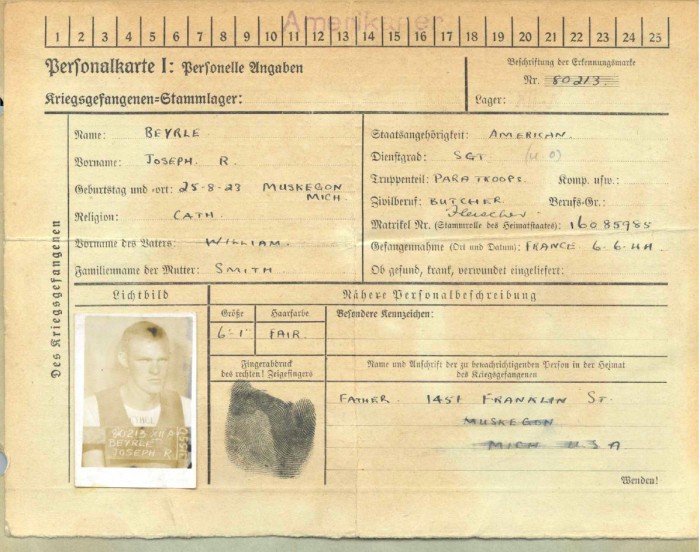 Amerikaner
1 2 3 4 5 6 7 8 9 10 11 12 13 14 15 16 17 18 19 20 21 22 23 24 25
Personalkarte I: Personelle Angaben
Kriegsgefangenen=Stammlager:
Beschriftung der Erkennungsmarke
Nr. 80213
Lager:
Des Kriegsgefangenen
Name: BEYRLE
Vorname: JOSEPH. R.
Geburtstag und =ort: 25-8-23 MUSKEGON
MICH.
Religion: CATH.
Vorname des Vaters: WILLIAM.
Familienname der Mutter: SMITH
Staatsangehörigkeit: AMERICAN.
Dienstgrad: SGT (U.O)
Truppenteil: PARATROOPS. Komp. usw.:
Zivilberuf: BUTCHER Berufs=Gr.:
Fleischer
Matrikel Nr. (Stammrolle des Heimatstaates): 16085985
Gefangennahme (Ort und Datum): FRANCE 6-6-44
Ob gesund, krank, verwundet eingeliefert:
Lichtbild
Nähere Personalbeschreibung
Größe
6-1"
Haarfarbe
FAIR.
Besondere Kennzeichen:
Fingerabdruck
des rechten! Zeigefingers
Name und Anschrift der zu benachrichtigenden Person in der Heimat
des Kriegsgefangenen
FATHER. 1451 FRANKLIN ST.
MUSKEGON
MICH U.S.A
80213 XII A
BEYRLE
JOSEPH-R.
Wenden!